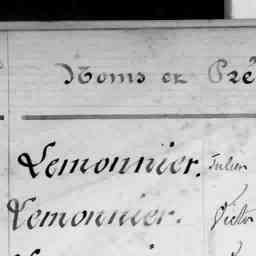 Noms et Pré
Lemonnier. Julien
Lemonnier. Victor